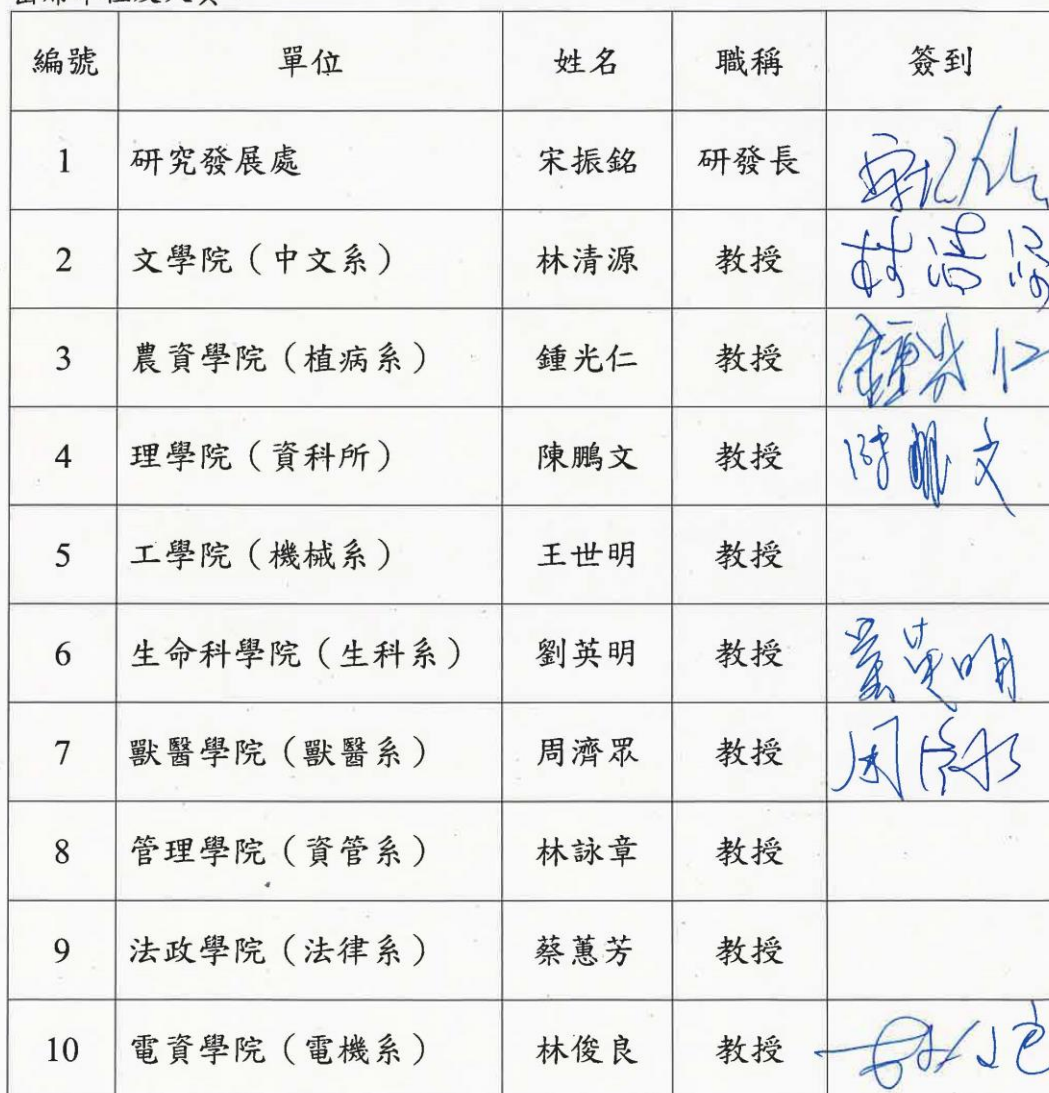 編號 單位 姓名 職稱 簽到
1 研究發展處 宋振銘 研發長
2 文學院（中文系） 林清源 教授 林清源
3 農資學院（植病系） 鍾光仁 教授 鍾光仁
4 理學院（資科所） 陳鵬文 教授 陳鵬文
5 工學院（機械系） 王世明 教授
6 生命科學院（生科系） 劉英明 教授 劉英明
7 獸醫學院（獸醫系） 周濟眾 教授 周濟眾
8 管理學院（資管系） 林詠章 教授
9 法政學院（法律系） 蔡蕙芳 教授
10 電資學院（電機系） 林俊良 教授